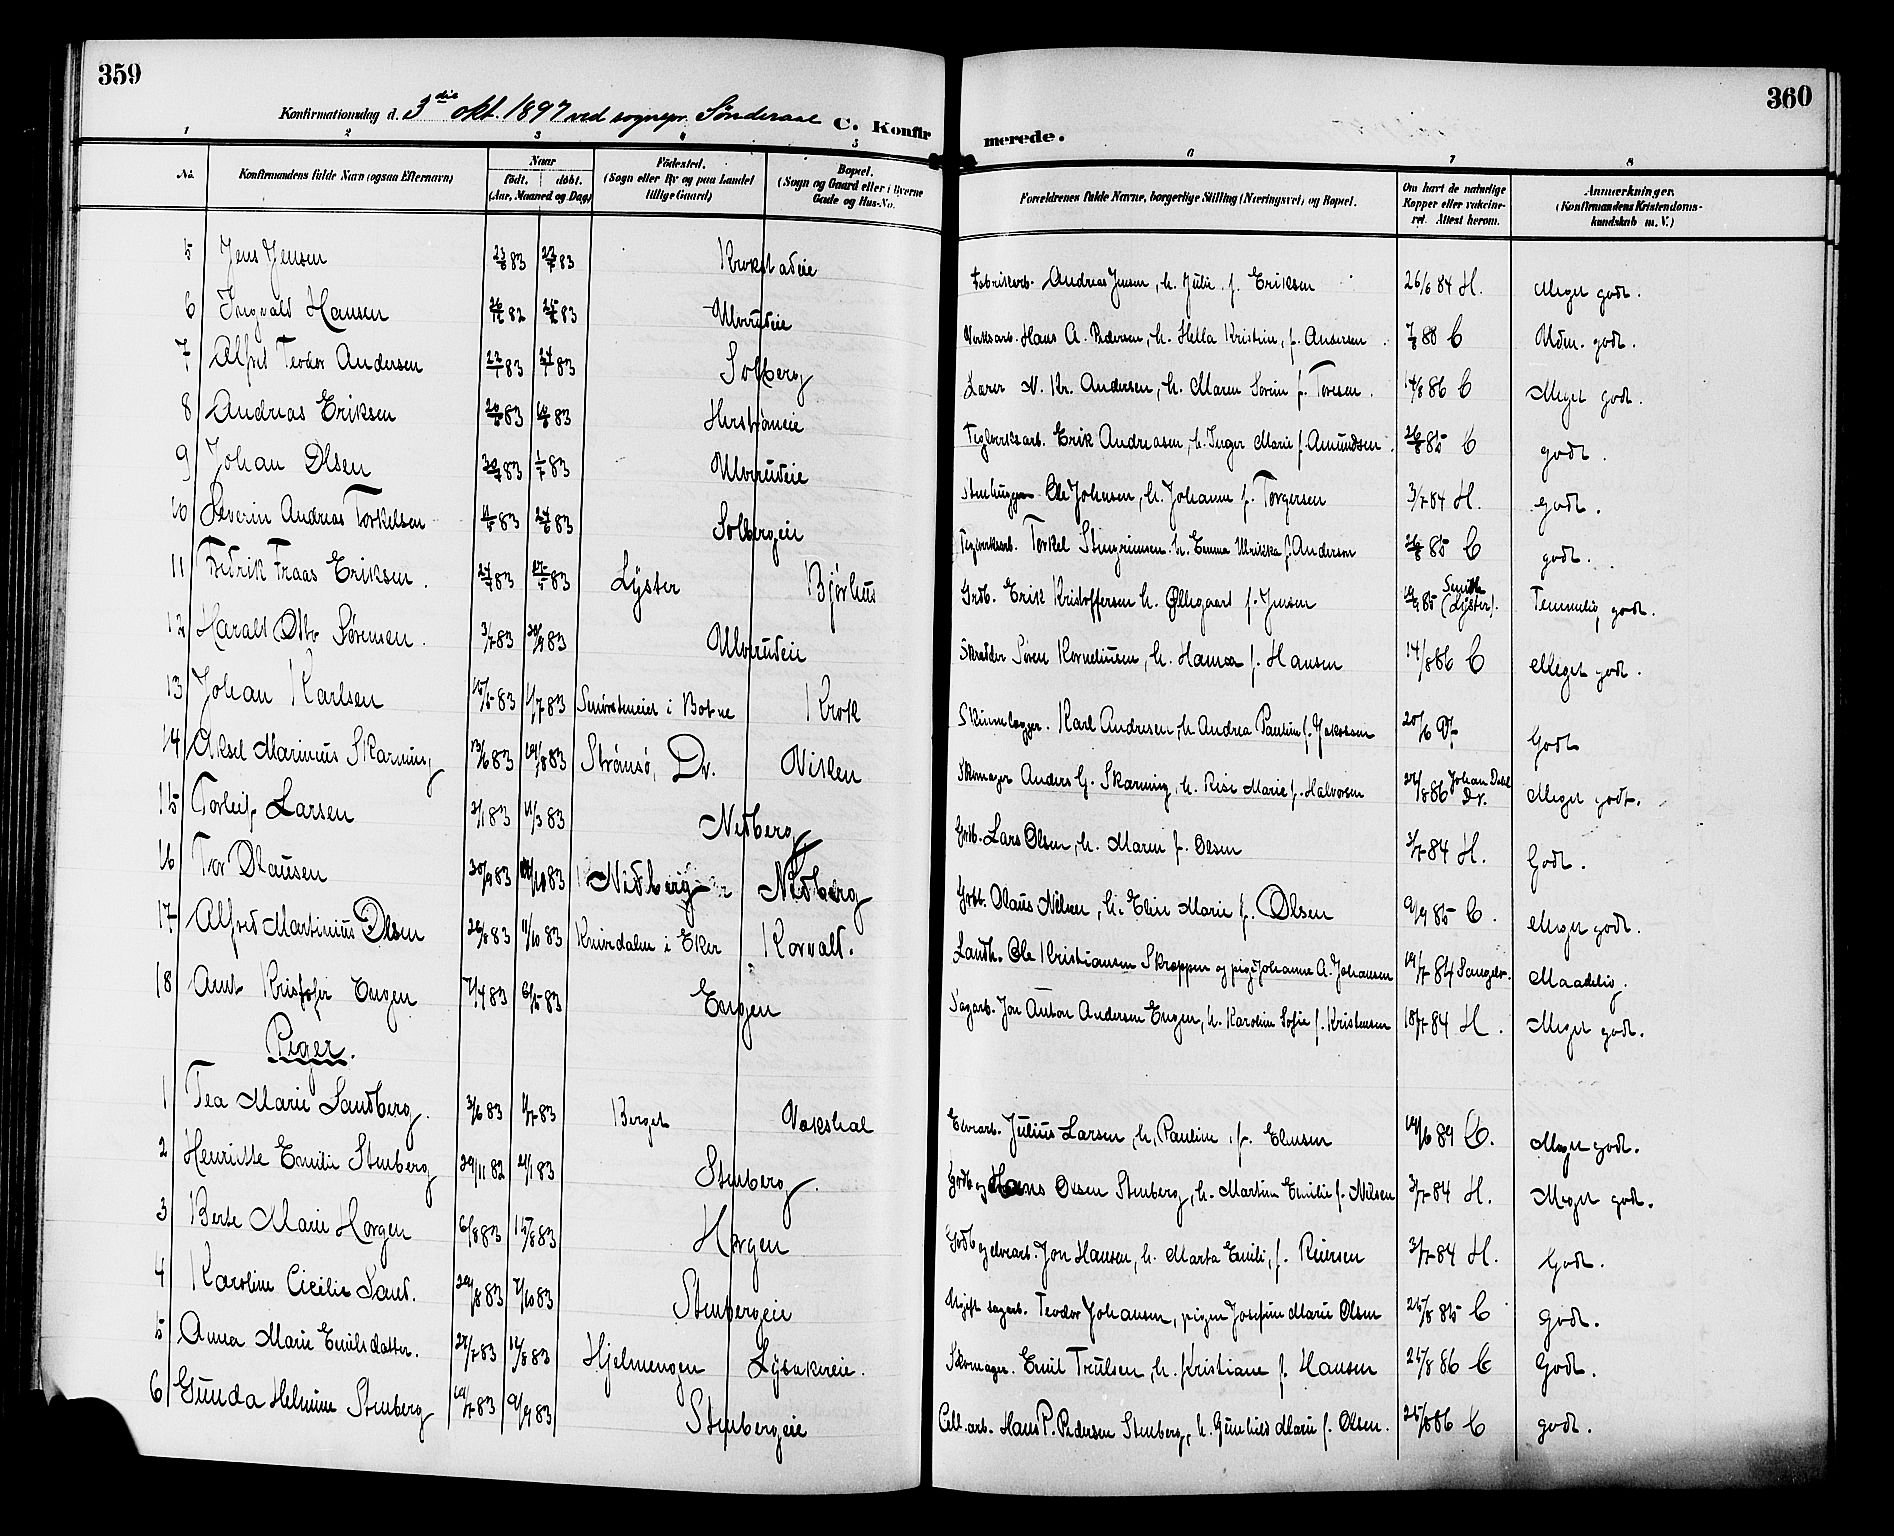 359
360
Konfirmationsdag d. 3die okt. 1897 ved sognepr. Sønderaal C. Konfirmerede.
1 2 3 4 5 6 7 8
No. Konfirmandens fulde Navn (ogsaa Efternavn) Naar født. døbt. (Aar, Maaned og Dag) Fødested. (Sogn eller By og paa Landet tillige Gaard) Bopæl. (Sogn og Gaard eller i Byerne Gade og Hus-No. Forældrenes fulde Navne, borgerlige Stilling (Næringsvei) og Bopæl. Om havt de naturlige Kopper eller vaksineret. Attest herom. Anmærkninger. (Konfirmandens Kristendomskundskab m. V.)
5 Jens Jensen 83 83 Krokstadeie Fabrikarb. Andreas Jensen, h. Julie f. Eriksen 26/6 84 H. Meget godt.
6 Ingvald Hansen 82 83 Ulverudeie Verksarb. Hans A. Pedersen, h. Hella Kristine, f. Andersen C Udm. godt.
7 Alfred Teodor Andersen 22/1 83 83 Solberg Lærer N. Kr. Andersen, h. Maren Sorine f. Toresen. 14/8 86 C Meget godt.
8 Andreas Eriksen 83 83 Herstrømeie Teglverksarb. Erik Andreasen, h. Inger Marie f. Amundsen. 26/8 85 C godt.
9 Johan Olsen 83 1/7 83 Ulverudeie Stenhugger Ole Johnsen, h. Johanne f. Torgersen 3/7 84 H. godt.
10 Severin Andreas Torkelsen 83 24/6 83 Solbergeie Teglverksarb. Torkel Stengrimsen h. Emma Ulrikka f. Anderson 26/8 85 C godt.
11 Fredrik Fraas Eriksen. 83 83 Lyster Bjørhus Grdb. Erik Kristoffersen h. Øllegaard f. Jensen 85 Smith (Lyster). Temmelig godt.
12 Harald Otto Sørensen. 3/7 83 30/9 83 Ulverudeie Skrædder Søren Korneliusen, h. Hanna f. Hansen 14/8 86 C Meget godt.
13 Johan Karlsen 15/5 83 1/7 83 Smørsteneiet i Botne Krok Skinnelægger. Karl Andresen, h. Andrea Pauline f. Jakobsen 20/6 Godt
14 Aksel Marinius Skarning 13/6 83 19/8 83 Strømsø, Dr. Viken Skomager Anders G. Skarning, h. Risi Marie f. Halvorsen 24/8 86 Johan Dahl Dr. Meget godt.
15 Torleif Larsen 2/1 83 11/3 83 Nedberg Grdb. Lars Olsen, h. Maren f. Olsen 3/7 84 H. Godt.
16 Tor Olausen 30/9 83 /10 83 Nedberg Nedberg Grdb. Olaus Nilsen, h. Elise Marie f. Olsen 9/9 85 C. Meget godt.
17 Alfred Martinius Olsen 26/8 83 11/10 83 Knivedalen i Eker Korvald. Landh. Ole Kristiansen Skroppen og pige Johanne A. Johansen 19/7 84 Maadelig.
18 Arnt Kristofer Engen 7/4 83 6/5 83 Engen Sagarb. Jon Anton Andersen Engen, h. Karoline Sofie f. Kristensen 18/7 84 H. Meget godt.
Piger.
1 Tea Marie Sandberg. 3/6 83 1/7 83 Berget Vakshal Elvearb. Julius Larsen, h. Pauline, f. Elensen 19/6 89 C. Meget godt.
2 Henriette Emilie Stenberg 29/11 82 21/1 83 Stenberg. Grdb og Hans Olsen Stenberg, h. Martine Emilie f. Nilsen 3/7 84 H. Meget godt.
3 Berte Marie Horgen 6/8 83 15/8 83 Horgen Grdb og elvearb. Jon Hansen, h. Marta Emili, f. Reiersen 3/7 84 H. Godt.
4 Karoline Cicilie Sand. 29/8 83 7/10 83 Stenbergeie Ugift sagarb. Teodor Johansen, pigen Josefine Marie Olsen 25/8 85 C Godt.
5 Anna Marie Emilsdatter. 27/7 83 19/8 83 Hjelmengen Lysakereie. Skomager. Emil Trulsen, h. Kristiane f. Hansen 25/8 86 C Godt.
6 Gunda Helmine Stenberg 19/7 83 9/9 83 Stenbergeie Cell.arb. Hans P. Pedersen Stenberg, h. Gunhild Marie f. Olsen. 25/8 86 C godt.